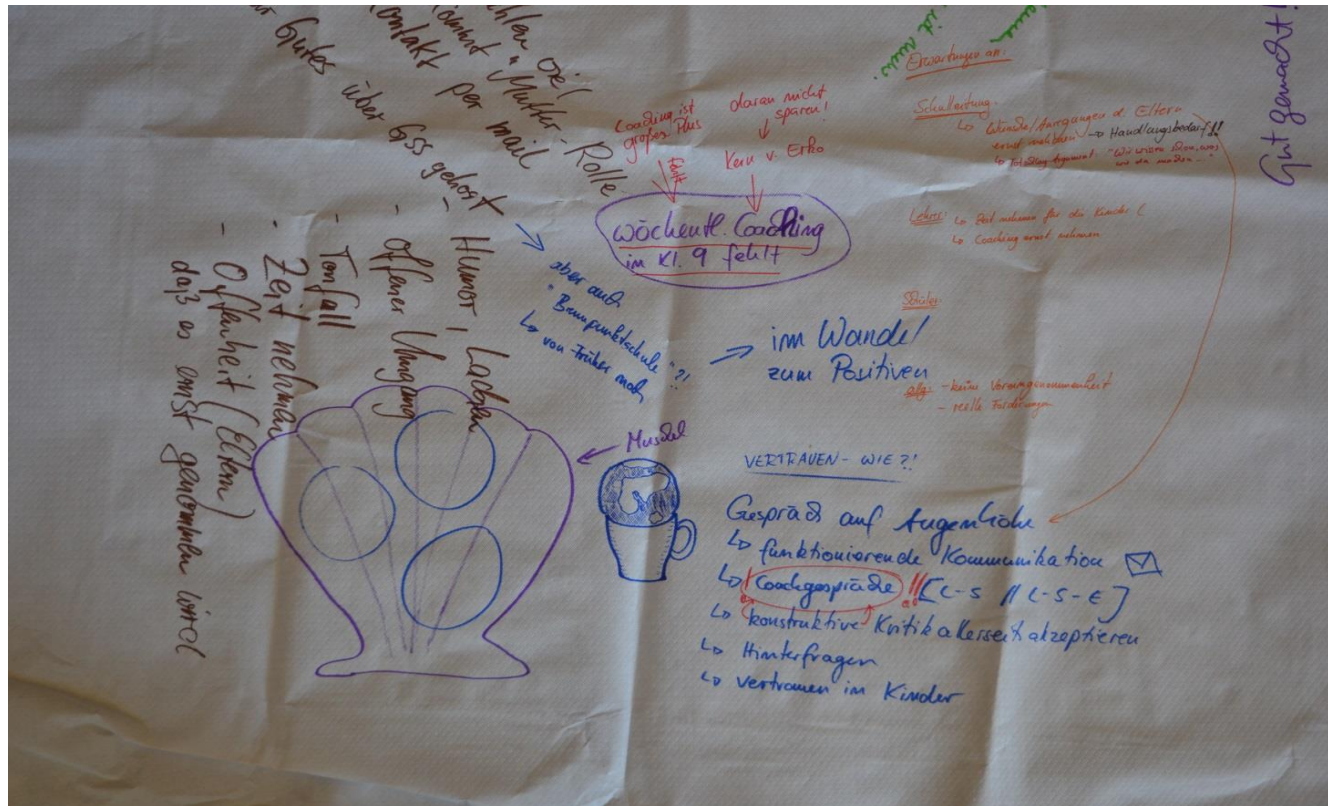 Gutes über GSS gehört
Kontakt per mail
"Mutter-Rolle
- Humor, Lachen
- Offener Umgang
- Tonfall
- Zeit nehmen
- Offenheit (Eltern)
daß es ernst genommen wird
Coaching ist
großes Plus
fehlt
daran nicht
sparen!
Kern v. Erko
wöchentl. Coaching
in Kl. 9 fehlt
aber auch
"Brennpunktschule"?!
↳ von früher noch
→ im Wandel
zum Positiven
Muschel
Erwartungen an:
Schulleitung:
↳ Wünsche/Anregungen d. Eltern
ernst nehmen → Handlungsbedarf!!
Lehrer: ↳ Zeit nehmen für die Kinder
↳ Coaching ernst nehmen
Schüler:
allg: - keine Voreingenommenheit
- reelle Forderungen
VERTRAUEN - WIE?!
Gespräch auf Augenhöhe
↳ funktionierende Kommunikation
↳ Coachgespräche !! [L-S // L-S-E]
↳ konstruktive Kritik allerseit akzeptieren
↳ Hinterfragen
↳ Vertrauen in Kinder
Gut gemacht!